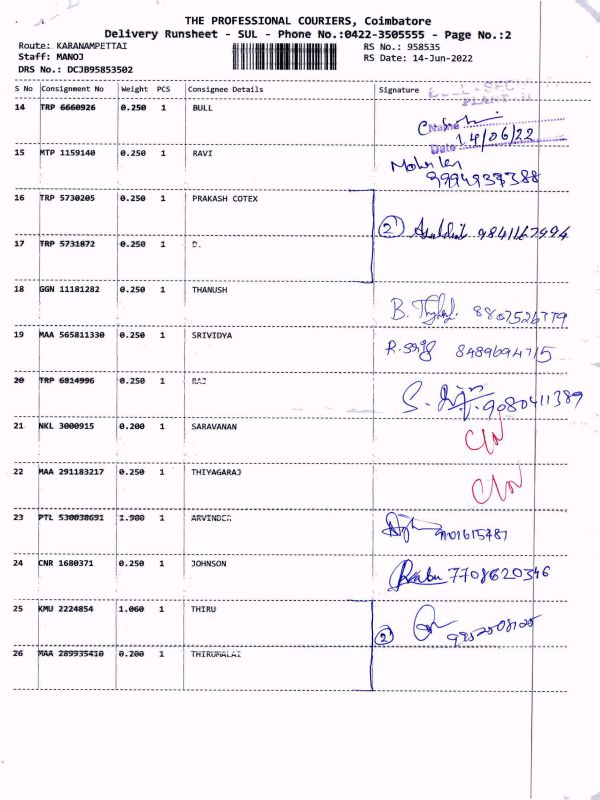 THE PROFESSIONAL COURIERS, Coimbatore
Delivery Runsheet - SUL - Phone No.:0422-3505555 - Page No.:2
Route: KARANAMPETTAI RS No.: 958535
Staff: MANOJ RS Date: 14-Jun-2022
DRS No.: DCJB95853502
S No Consignment No Weight PCS Consignee Details Signature
14 TRP 6660926 0.250 1 BULL
Name
14/06/22
Date
15 MTP 1159140 0.250 1 RAVI
9994937388
16 TRP 5730205 0.250 1 PRAKASH COTEX
2 9841167994
17 TRP 5731872 0.250 1 D.
18 GGN 11181282 0.250 1 THANUSH
8807526779
19 MAA 565811330 0.250 1 SRIVIDYA
8489694715
20 TRP 6814996 0.250 1 RAJ
9080411389
21 NKL 3000915 0.200 1 SARAVANAN
C/N
22 MAA 291183217 0.250 1 THIYAGARAJ
C/N
23 PTL 530038691 1.900 1 ARVINDER
24 CNR 1680371 0.250 1 JOHNSON
Babu 7708620346
25 KMU 2224854 1.060 1 THIRU
2
26 MAA 289935410 0.200 1 THIRUMALAI